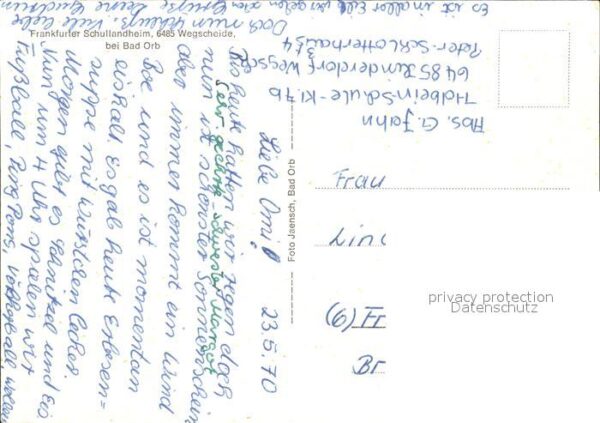 Frankfurter Schullandheim, 6485 Wegscheide,
bei Bad Orb
Foto Jaensch, Bad Orb
23.5.70
Liebe Omi!
Bis heute hatten wir Regen doch
nun ist schönster Sonnenschein
aber immer kommt ein Wind
Böe und es ist momentan
eiskalt. Es gab heute Erbsen=
suppe mit Würstchen lecker.
Morgen gibt es Schnitzel und Eis
Nun um 4 Uhr spielen wir
Fußball, Ping Pong, Völkerball
Doch nun Schluß. Viele liebe
Grüße deine
Es ist in aller Eile
Sehr geehrte Schwester Margot
Abs. G. Jahn
Holbein-Schule-Kl. 7b
6485 Kinderdorf Wegsch
Peter-Schlotterhaus 4
Frau
(6) F
Br
privacy protection
Datenschutz